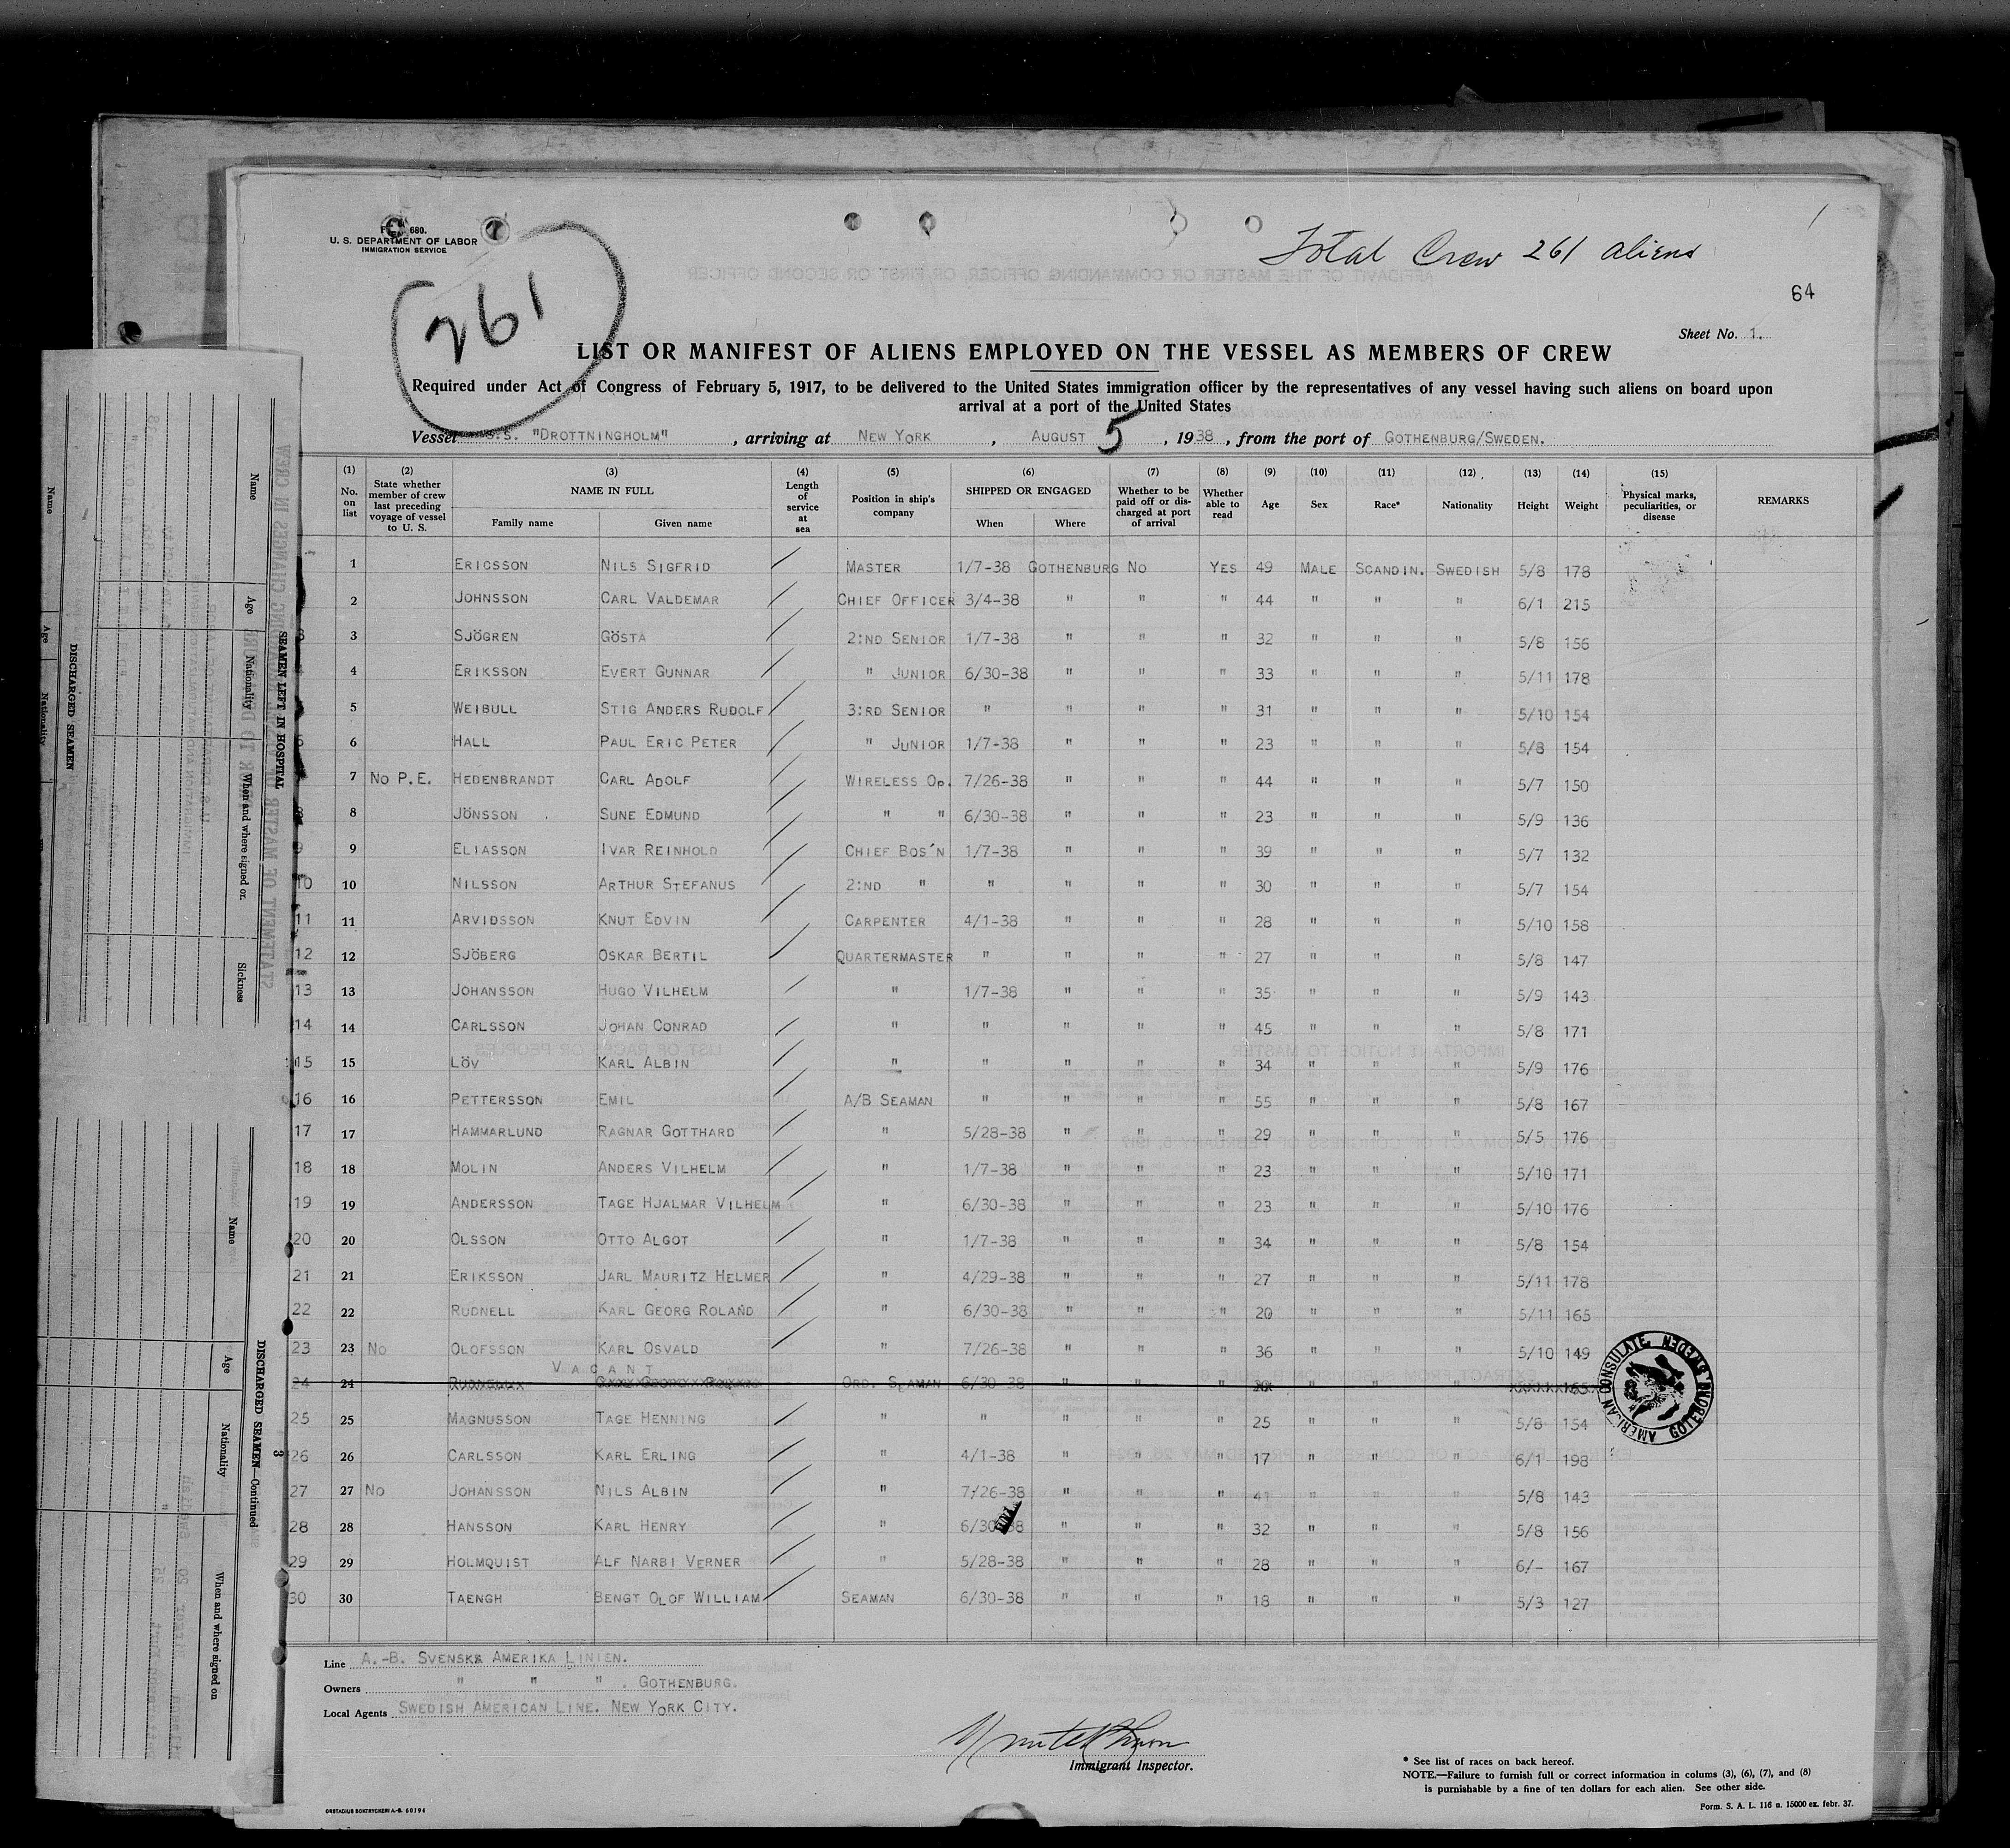 Total Crew 261 aliens
680.
U. S. DEPARTMENT OF LABOR
IMMIGRATION SERVICE
261
64
Sheet No. 1.
LIST OR MANIFEST OF ALIENS EMPLOYED ON THE VESSEL AS MEMBERS OF CREW
Required under Act of Congress of February 5, 1917, to be delivered to the United States immigration officer by the representatives of any vessel having such aliens on board upon
arrival at a port of the United States
Vessel S.S. "DROTTNINGHOLM" , arriving at NEW YORK , AUGUST 5 , 1938 , from the port of GOTHENBURG/SWEDEN.
(1) No. on list (2) State whether member of crew last preceding voyage of vessel to U. S. (3) NAME IN FULL Family name Given name (4) Length of service at sea (5) Position in ship's company (6) SHIPPED OR ENGAGED When Where (7) Whether to be paid off or discharged at port of arrival (8) Whether able to read (9) Age (10) Sex (11) Race* (12) Nationality (13) Height (14) Weight (15) Physical marks, peculiarities, or disease REMARKS
1 ERICSSON NILS SIGFRID / MASTER 1/7-38 GOTHENBURG NO YES 49 MALE SCANDIN. SWEDISH 5/8 178
2 JOHNSSON CARL VALDEMAR / CHIEF OFFICER 3/4-38 " " " 44 " " " 6/1 215
3 SJÖGREN GÖSTA / 2:ND SENIOR 1/7-38 " " " 32 " " " 5/8 156
4 ERIKSSON EVERT GUNNAR / " JUNIOR 6/30-38 " " " 33 " " " 5/11 178
5 WEIBULL STIG ANDERS RUDOLF / 3:RD SENIOR " " " " 31 " " " 5/10 154
6 HALL PAUL ERIC PETER / " JUNIOR 1/7-38 " " " 23 " " " 5/8 154
7 NO P.E. HEDENBRANDT CARL ADOLF / WIRELESS OP. 7/26-38 " " " 44 " " " 5/7 150
8 JÖNSSON SUNE EDMUND / " " 6/30-38 " " " 23 " " " 5/9 136
9 ELIASSON IVAR REINHOLD / CHIEF BOS'N 1/7-38 " " " 39 " " " 5/7 132
10 10 NILSSON ARTHUR STEFANUS / 2:ND " " " " " 30 " " " 5/7 154
11 11 ARVIDSSON KNUT EDVIN / CARPENTER 4/1-38 " " " 28 " " " 5/10 158
12 12 SJÖBERG OSKAR BERTIL / QUARTERMASTER " " " " 27 " " " 5/8 147
13 13 JOHANSSON HUGO VILHELM / " 1/7-38 " " " 35 " " " 5/9 143
14 14 CARLSSON JOHAN CONRAD / " " " " " 45 " " " 5/8 171
15 15 LÖV KARL ALBIN / " " " " " 34 " " " 5/9 176
16 16 PETTERSSON EMIL / A/B SEAMAN " " " " 55 " " " 5/8 167
17 17 HAMMARLUND RAGNAR GOTTHARD / " 5/28-38 " " " 29 " " " 5/5 176
18 18 MOLIN ANDERS VILHELM / " 1/7-38 " " " 23 " " " 5/10 171
19 19 ANDERSSON TAGE HJALMAR VILHELM / " 6/30-38 " " " 23 " " " 5/10 176
20 20 OLSSON OTTO ALGOT / " 1/7-38 " " " 34 " " " 5/8 154
21 21 ERIKSSON JARL MAURITZ HELMER / " 4/29-38 " " " 27 " " " 5/11 178
22 22 RUDNELL KARL GEORG ROLAND / " 6/30-38 " " " 20 " " " 5/11 165
23 23 NO OLOFSSON KARL OSVALD / " 7/26-38 " " " 36 " " " 5/10 149
VACANT
24 24 ORD. SEAMAN 6/30-38 " " " " " " 165
25 25 MAGNUSSON TAGE HENNING / " " " " " 25 " " " 5/8 154
26 26 CARLSSON KARL ERLING / " 4/1-38 " " " 17 " " " 6/1 198
27 27 NO JOHANSSON NILS ALBIN / " 7/26-38 " " " 41 " " " 5/8 143
28 28 HANSSON KARL HENRY / " 6/30-38 " " " 32 " " " 5/8 156
29 29 HOLMQUIST ALF NARBI VERNER / " 5/28-38 " " " 28 " " " 6/- 167
30 30 TAENGH BENGT OLOF WILLIAM / SEAMAN 6/30-38 " " " 18 " " " 5/3 127
AMERICAN CONSULATE, GOTEBORG, SWEDEN
Line A.-B. SVENSKA AMERIKA LINIEN.
Owners " " " , GOTHENBURG.
Local Agents SWEDISH AMERICAN LINE. NEW YORK CITY.
Immigrant Inspector.
* See list of races on back hereof.
NOTE.—Failure to furnish full or correct information in colums (3), (6), (7), and (8)
is purnishable by a fine of ten dollars for each alien. See other side.
Form. S. A. L. 116 n. 15000 ex. febr. 37.
ORSTADIUS BOKTRYCKERI A.-B. 60196
SEAMEN LEFT IN HOSPITAL
Name Age Nationality When and where signed or. Sickness
DISCHARGED SEAMEN
Name Age Nationality
DISCHARGED SEAMEN—Continued
3
Name Age Nationality When and where signed on